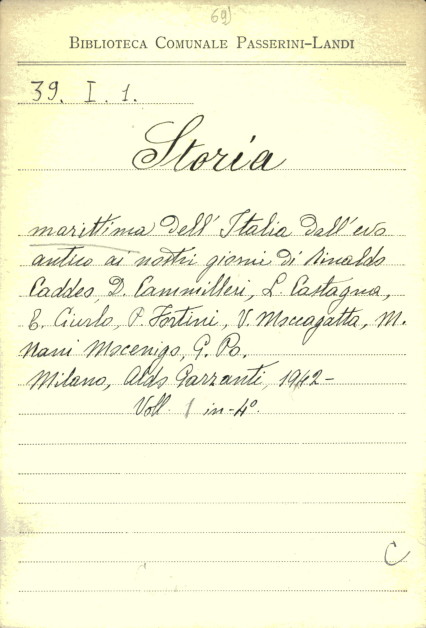 69
BIBLIOTECA COMUNALE PASSERINI-LANDI
39. I. 1.
Storia
marittima dell' Italia dall'evo
antico ai nostri giorni di Rinaldo
Caddeo, D. Cammilleri, L. Castagna,
E. Ciurlo, P. Fortini, V. Moccagatta, M.
Nani Mocenigo, G. Po.
Milano, Aldo Garzanti, 1942-
Voll. 1 in-4º.
C